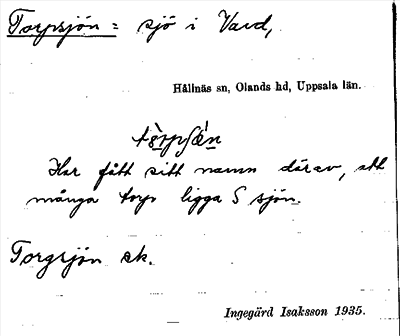 Torpsjön = sjö i Vavd,
Hållnäs sn, Olands hd, Uppsala län.
Har fått sitt namn därav, att
många torp ligga S sjön.
Torgsjön ek.
Ingegärd Isaksson 1935.